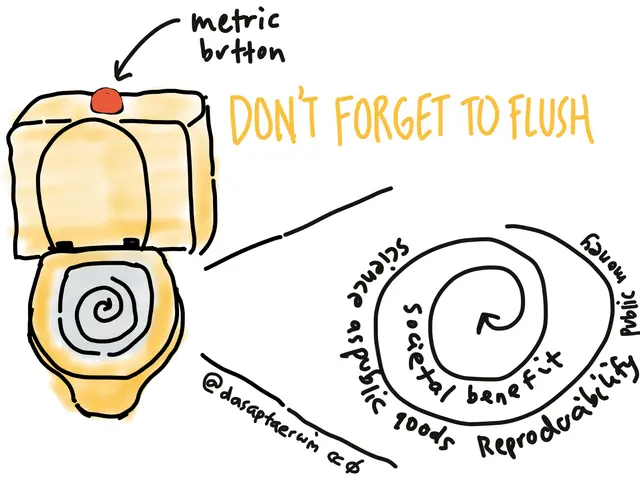 metric
button
DON'T FORGET TO FLUSH
public money
Reproducibility
science as public goods
societal benefit
@dasaptaerwin cc ø